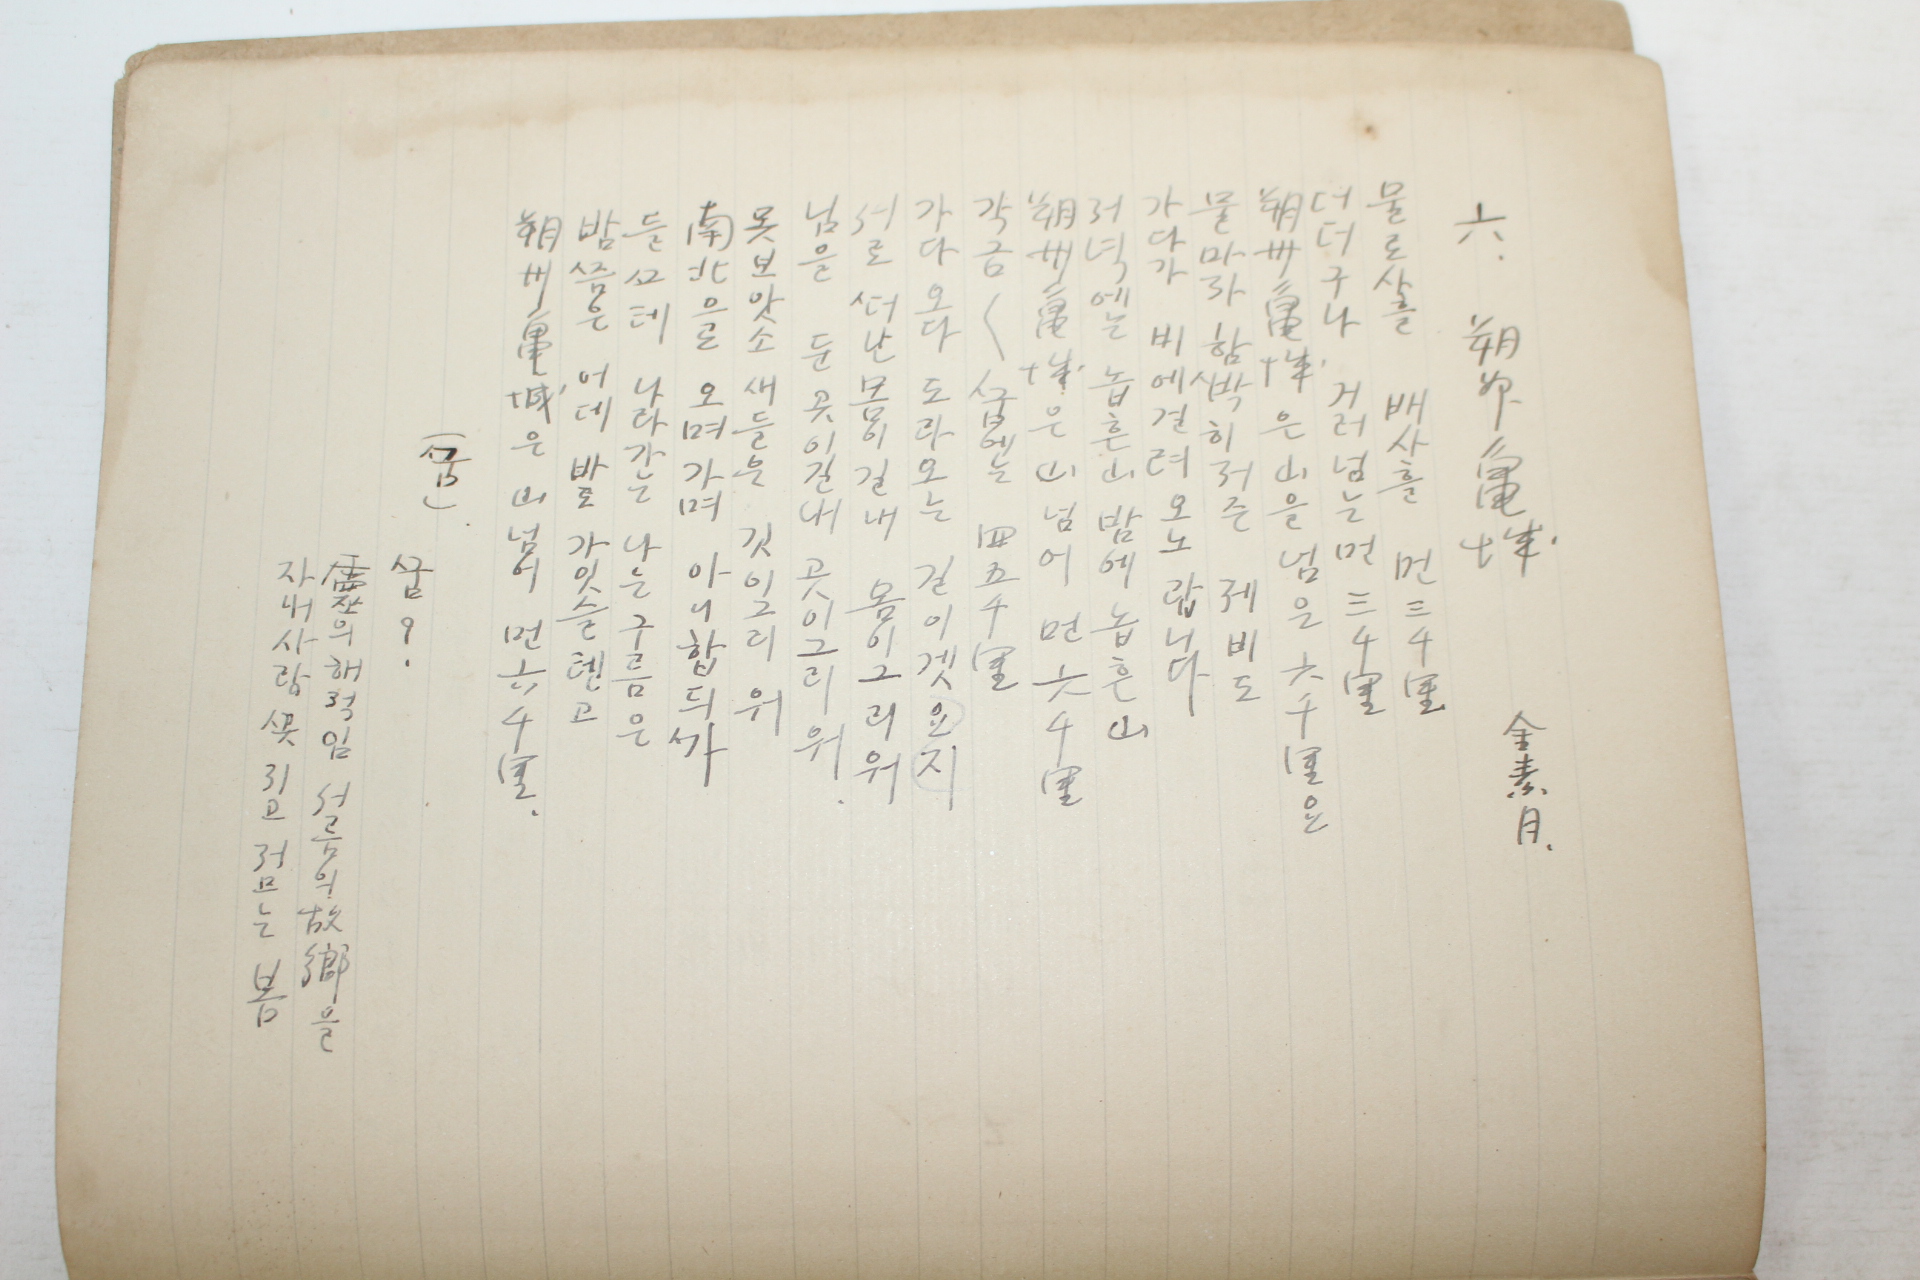 六. 朔州龜城 金素月.
물로사흘 배사흘 먼三千里
더더구나 거러넘는먼三千里
朔州龜城은山을넘은六千里요
물마자 함ᄲᅡᆨ히저즌 제비도
가다가 비에걸려 오노랍니다
저녁에는 놉흔山 밤에놉흔山
朔州龜城은山넘어 먼六千里
각금〱 ᄭᅮᆷ에는 四五千里
가다오다 도라오는 길이겟요지
서로 ᄯᅥ난몸이길내 몸이그리워
님을 둔곳이길내 곳이그리워.
못보앗소 새들은 깃이그리워
南北으로 오며가며 아니합듸ᄭᅡ
들ᄭᅳᆺ테 나라가는 나는구름은
밤ᄶᅳᆷ은 어데 바로 가잇슬텐고
朔州龜城은 山넘어 먼六千里.
(ᄭᅮᆷ).
ᄭᅮᆷ?
靈의해적임 설음의故鄕을
자내사랑 ᄭᅩᆺ 지고 저므는 봄